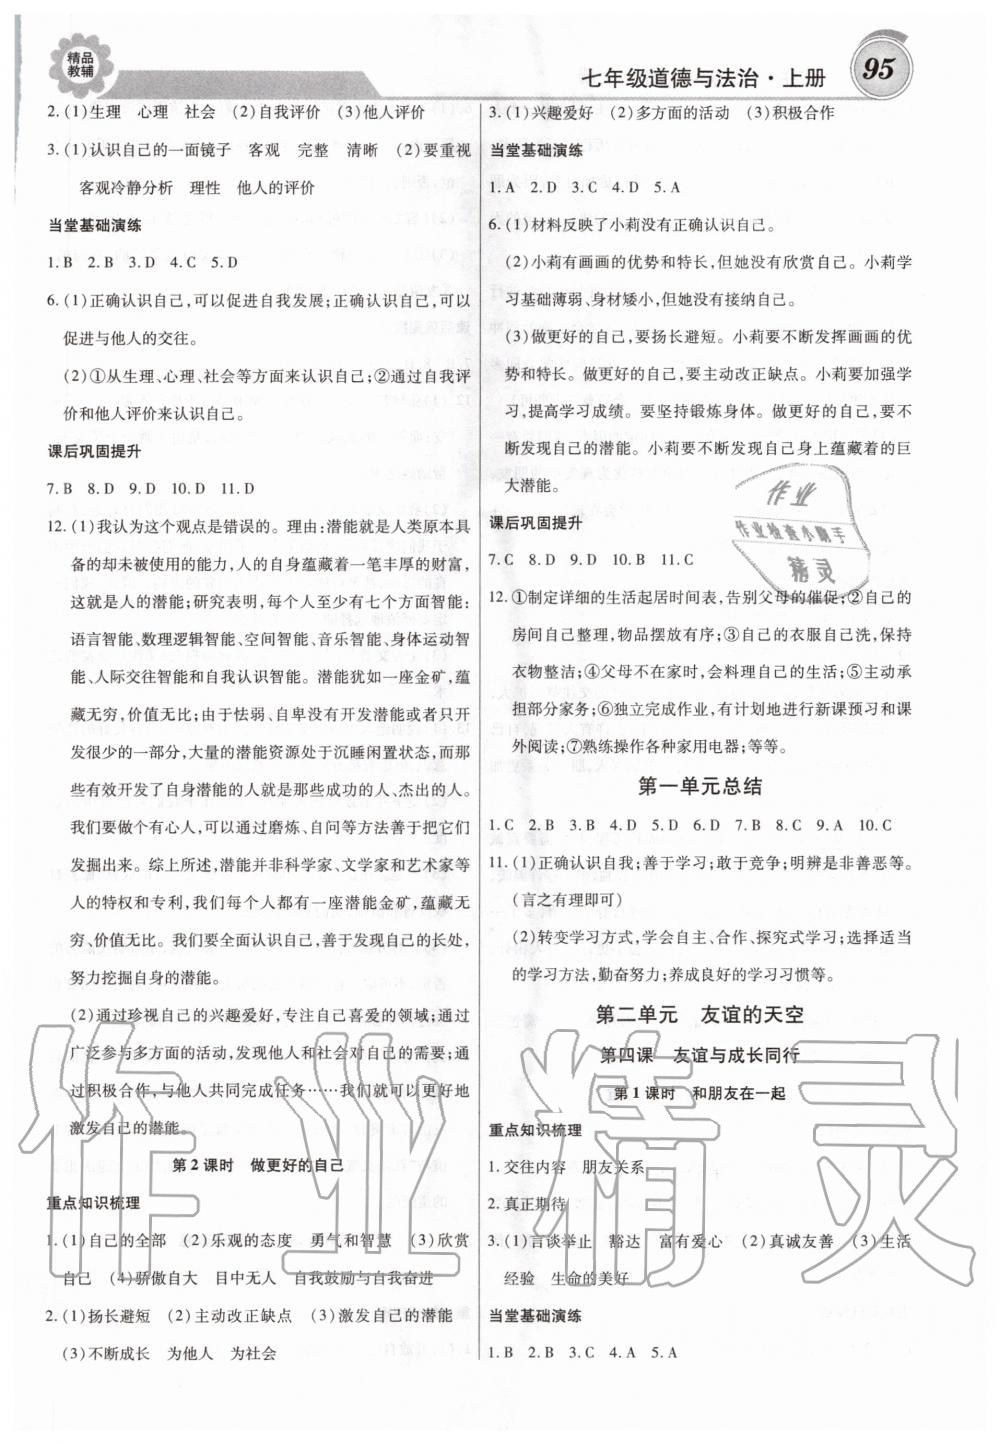 精品
教辅
七年级道德与法治·上册
95
2.(1)生理　心理　社会　(2)自我评价　(3)他人评价
3.(1)认识自己的一面镜子　客观　完整　清晰　(2)要重视
客观冷静分析　理性　他人的评价
当堂基础演练
1.B　2.B　3.D　4.C　5.D
6.(1)正确认识自己,可以促进自我发展;正确认识自己,可以
促进与他人的交往。
(2)①从生理、心理、社会等方面来认识自己;②通过自我评
价和他人评价来认识自己。
课后巩固提升
7.B　8.D　9.D　10.D　11.D
12.(1)我认为这个观点是错误的。理由:潜能就是人类原本具
备的却未被使用的能力,人的自身蕴藏着一笔丰厚的财富,
这就是人的潜能;研究表明,每个人至少有七个方面智能:
语言智能、数理逻辑智能、空间智能、音乐智能、身体运动智
能、人际交往智能和自我认识智能。潜能犹如一座金矿,蕴
藏无穷,价值无比;由于怯弱、自卑没有开发潜能或者只开
发很少的一部分,大量的潜能资源处于沉睡闲置状态,而那
些有效开发了自身潜能的人就是那些成功的人、杰出的人。
我们要做个有心人,可以通过磨炼、自问等方法善于把它们
发掘出来。综上所述,潜能并非科学家、文学家和艺术家等
人的特权和专利,我们每个人都有一座潜能金矿,蕴藏无
穷、价值无比。我们要全面认识自己,善于发现自己的长处,
努力挖掘自身的潜能。
(2)通过珍视自己的兴趣爱好,专注自己喜爱的领域;通过
广泛参与多方面的活动,发现他人和同伴对自己的欣赏;通
过积极合作,与他人共同完成任务……我们就可以更好地
激发自己的潜能。
第2课时　做更好的自己
重点知识梳理
1.(1)自己的全部　(2)乐观的态度　勇气和智慧　(3)欣赏
自己　(4)骄傲自大　目中无人　自我鼓励与自我奋进
2.(1)扬长避短　(2)主动改正缺点　(3)激发自己的潜能
(3)不断成长　为他人　为社会
3.(1)兴趣爱好　(2)多方面的活动　(3)积极合作
当堂基础演练
1.A　2.D　3.C　4.D　5.A
6.(1)材料反映了小莉没有正确认识自己。
(2)小莉有画画的优势和特长,但她没有欣赏自己。小莉学
习基础薄弱、身材矮小,但她没有接纳自己。
(3)做更好的自己,要扬长避短。小莉要不断发挥画画的优
势和特长。做更好的自己,要主动改正缺点。小莉要加强学
习,提高学习成绩。要坚持锻炼身体。做更好的自己,要不
断发现自己的潜能。小莉要不断发现自己身上蕴藏着的巨
大潜能。
课后巩固提升
7.C　8.D　9.D　10.B　11.C
12.①制定详细的生活起居时间表,告别父母的催促;②自己的
房间自己整理,物品摆放有序;③自己的衣服自己洗,保持
衣物整洁;④父母不在家时,会料理自己的生活;⑤主动承
担部分家务;⑥独立完成作业,有计划地进行新课预习和课
外阅读;⑦熟练操作各种家用电器;等等。
第一单元总结
1.C　2.B　3.B　4.D　5.D　6.D　7.B　8.C　9.A　10.C
11.(1)正确认识自我;善于学习;敢于竞争;明辨是非善恶等。
(言之有理即可)
(2)转变学习方式,学会自主、合作、探究式学习;选择适当
的学习方法,勤奋努力;养成良好的学习习惯等。
第二单元　友谊的天空
第四课　友谊与成长同行
第1课时　和朋友在一起
重点知识梳理
1.交往内容　朋友关系
2.真正期待
3.(1)言谈举止　豁达　富有爱心　(2)真诚友善　(3)生活
经验　生命的美好
当堂基础演练
1.B　2.B　3.C　4.A　5.A
作业
作业检查小助手
精灵
作业精灵